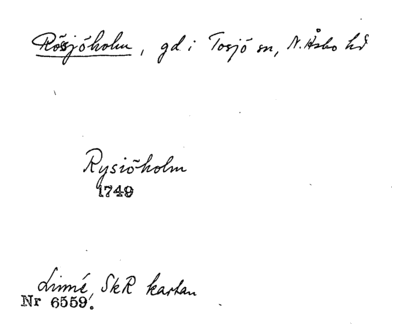 Rössjöholm, gd i Tosjö sn, N. Åsbo hd
Rysiöholm
1749
Linné, SkR kartan
Nr 6559.